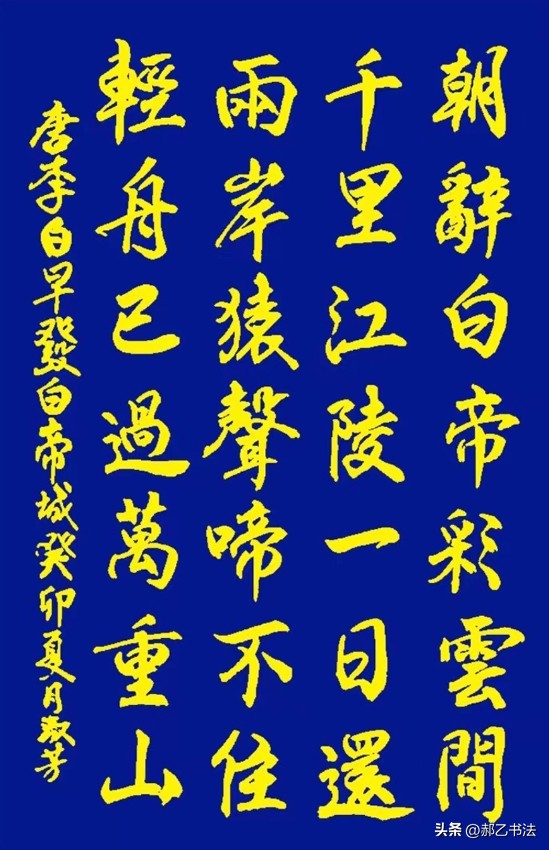 朝辭白帝彩雲間
千里江陵一日還
兩岸猿聲啼不住
輕舟已過萬重山
唐李白早發白帝城癸卯夏月芳
头条 @郝乙书法